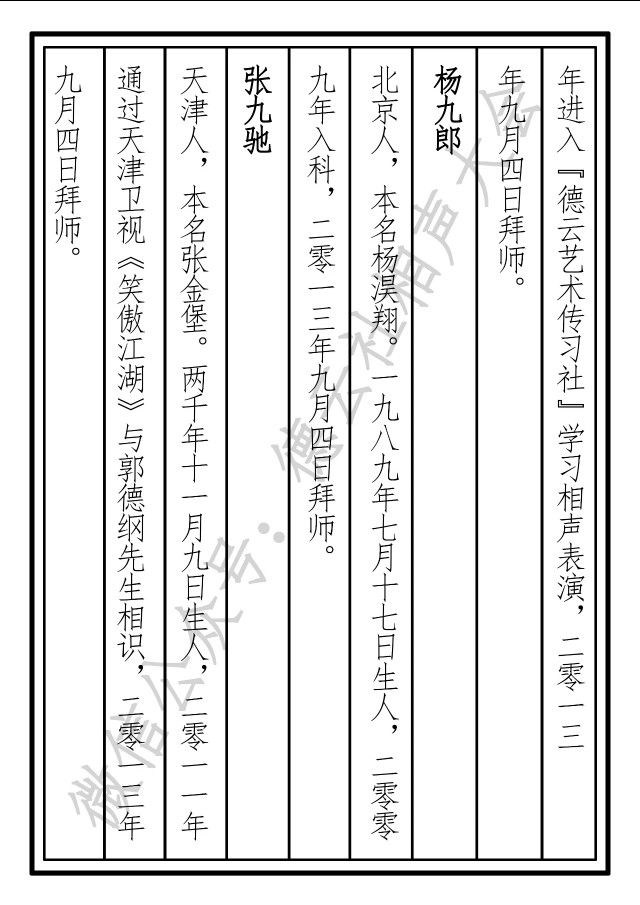 年进入『德云艺术传习社』学习相声表演，二零一三
年九月四日拜师。
杨九郎
北京人，本名杨淏翔。一九八九年七月十七日生人，二零零
九年入科，二零一三年九月四日拜师。
张九驰
天津人，本名张金堡。两千年十一月九日生人，二零一一年
通过天津卫视《笑傲江湖》与郭德纲先生相识，二零一三年
九月四日拜师。
微信公众号：德云社相声大会